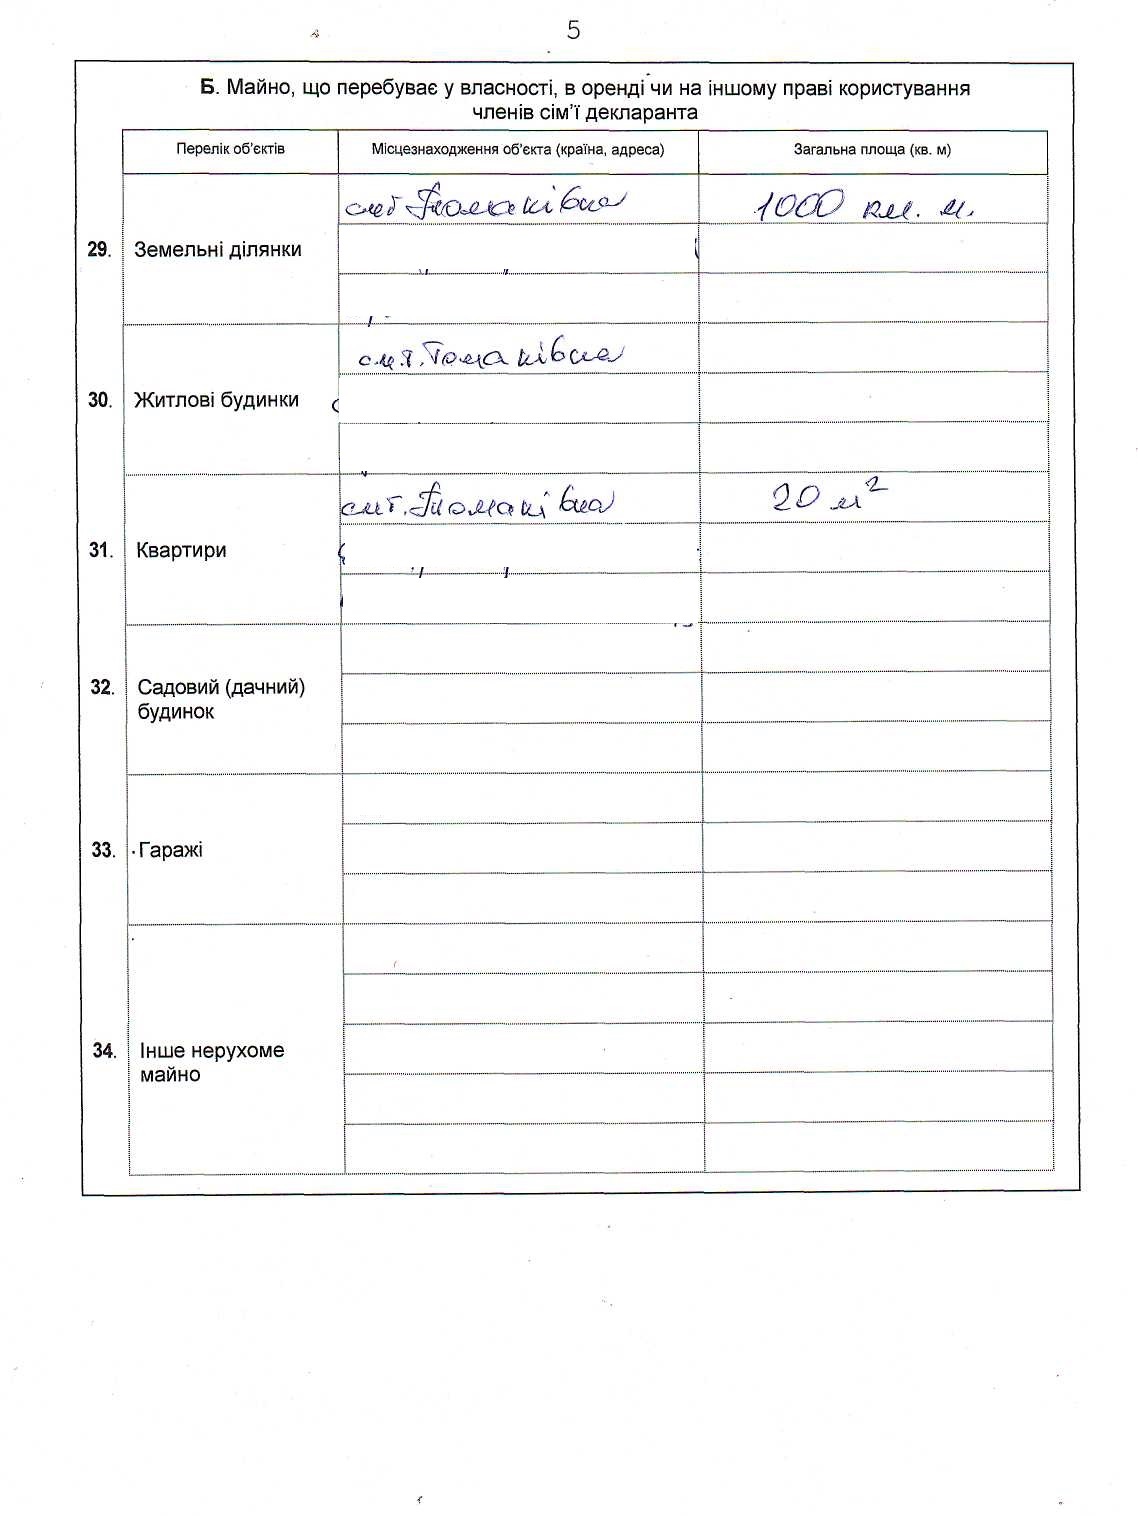 5
Б. Майно, що перебуває у власності, в оренді чи на іншому праві користування
членів сім'ї декларанта
Перелік об'єктів Місцезнаходження об'єкта (країна, адреса) Загальна площа (кв. м)
смт Томаківка 1000 км. м.
29. Земельні ділянки
смт. Томаківка
30. Житлові будинки
смт. Томаківка 20 м²
31. Квартири
32. Садовий (дачний)
будинок
33. Гаражі
34. Інше нерухоме
майно